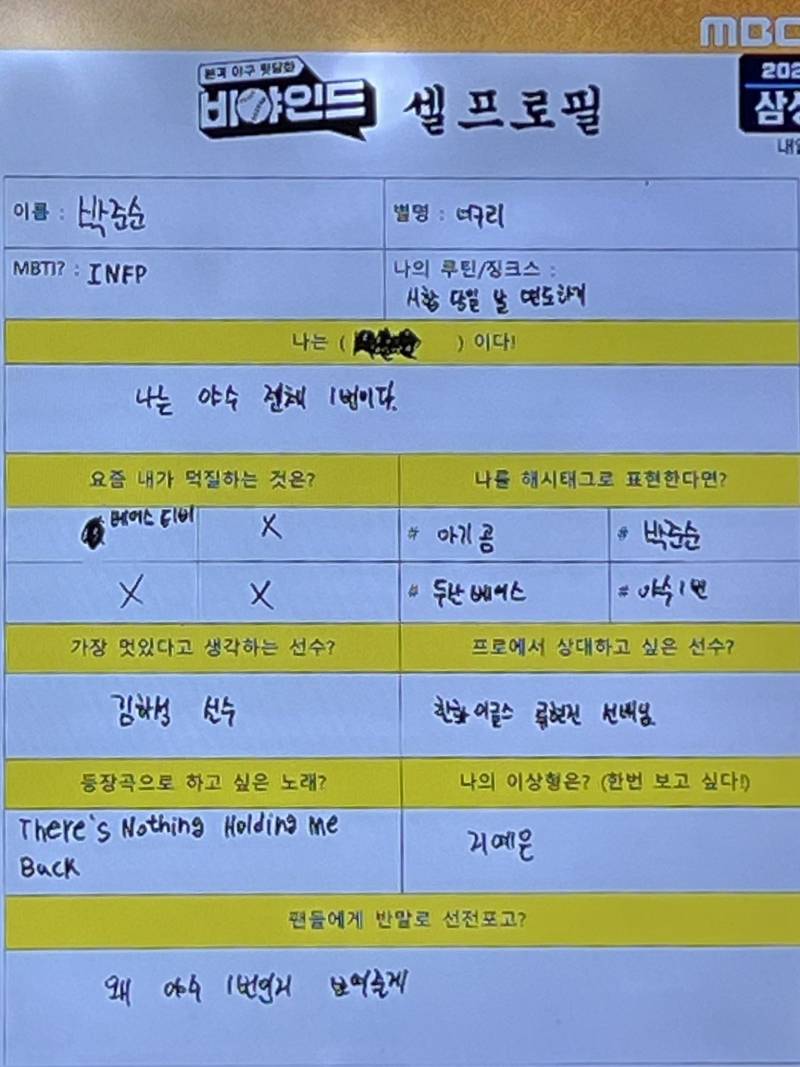 MBC
본격 야구 뒷담화
비야인드 셀프로필
202
삼성
내일
이름 : 박준순
별명 : 너구리
MBTI? : INFP
나의 루틴/징크스 :
시합 당일 날 면도하기
나는 ( ) 이다!
나는 야수 전체 1번이다.
요즘 내가 덕질하는 것은?
나를 해시태그로 표현한다면?
베어스 티비 X
# 아기곰 # 박준순
X X
# 두산베어스 # 야수1번
가장 멋있다고 생각하는 선수?
프로에서 상대하고 싶은 선수?
김하성 선수
한화이글스 류현진 선배님
등장곡으로 하고 싶은 노래?
나의 이상형은? (한번 보고 싶다!)
There's Nothing Holding me
Back
리예은
팬들에게 반말로 선전포고?
왜 야수 1번인지 보여줄게